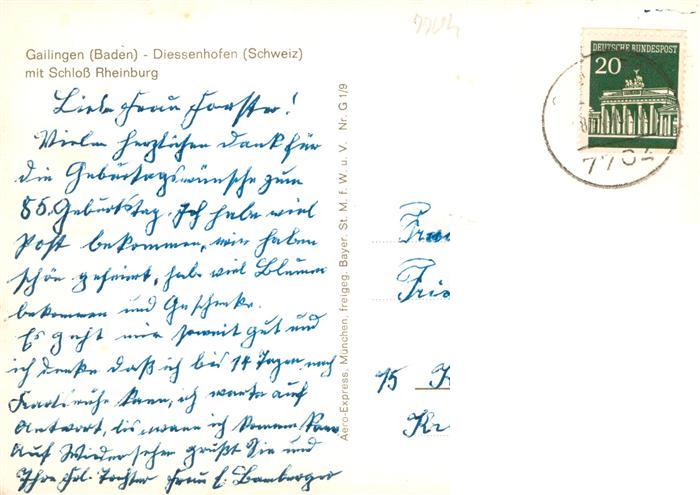 Gailingen (Baden) - Diessenhofen (Schweiz)
mit Schloß Rheinburg
Liebe Frau Forster!
Vielen herzlichen Dank für
die Geburtagswünsche zum
85. Geburtstag. Ich habe viel
Post bekommen, wir haben
schön gefeiert, habe viel Blumen
bekommen und Geschenke.
Es geht mir soweit gut und
ich denke daß ich bis 14 Tagen nach
Karlsruhe kann, ich warte auf
Antwort, bis wann ich kommen kann
Auf Wiedersehen grüßt Sie und
Ihre Frl. Tochter Frau E. Bamberger
Aero-Express, München, freigeg. Bayer. St. M. f. W. u. V. Nr. G 1/9
DEUTSCHE BUNDESPOST
20
7704
Frau
Frie
15 K
Kr